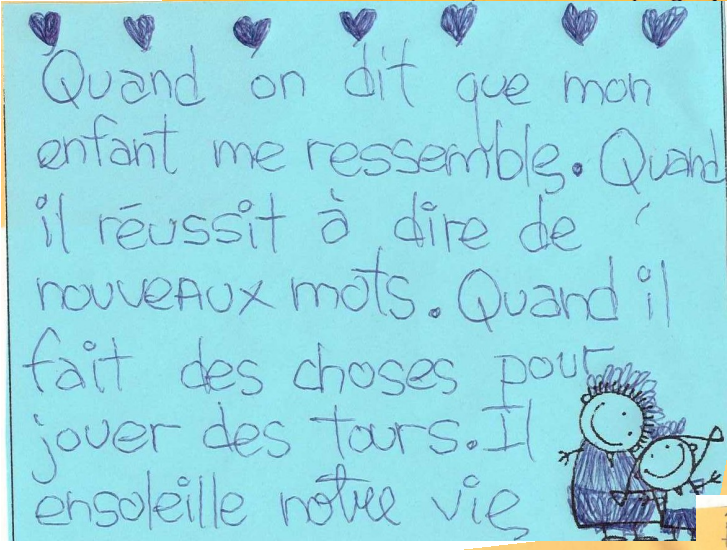 Quand on dit que mon
enfant me ressemble. Quand
il réussit à dire de
nouveaux mots. Quand il
fait des choses pour
jouer des tours. Il
ensoleille notre vie